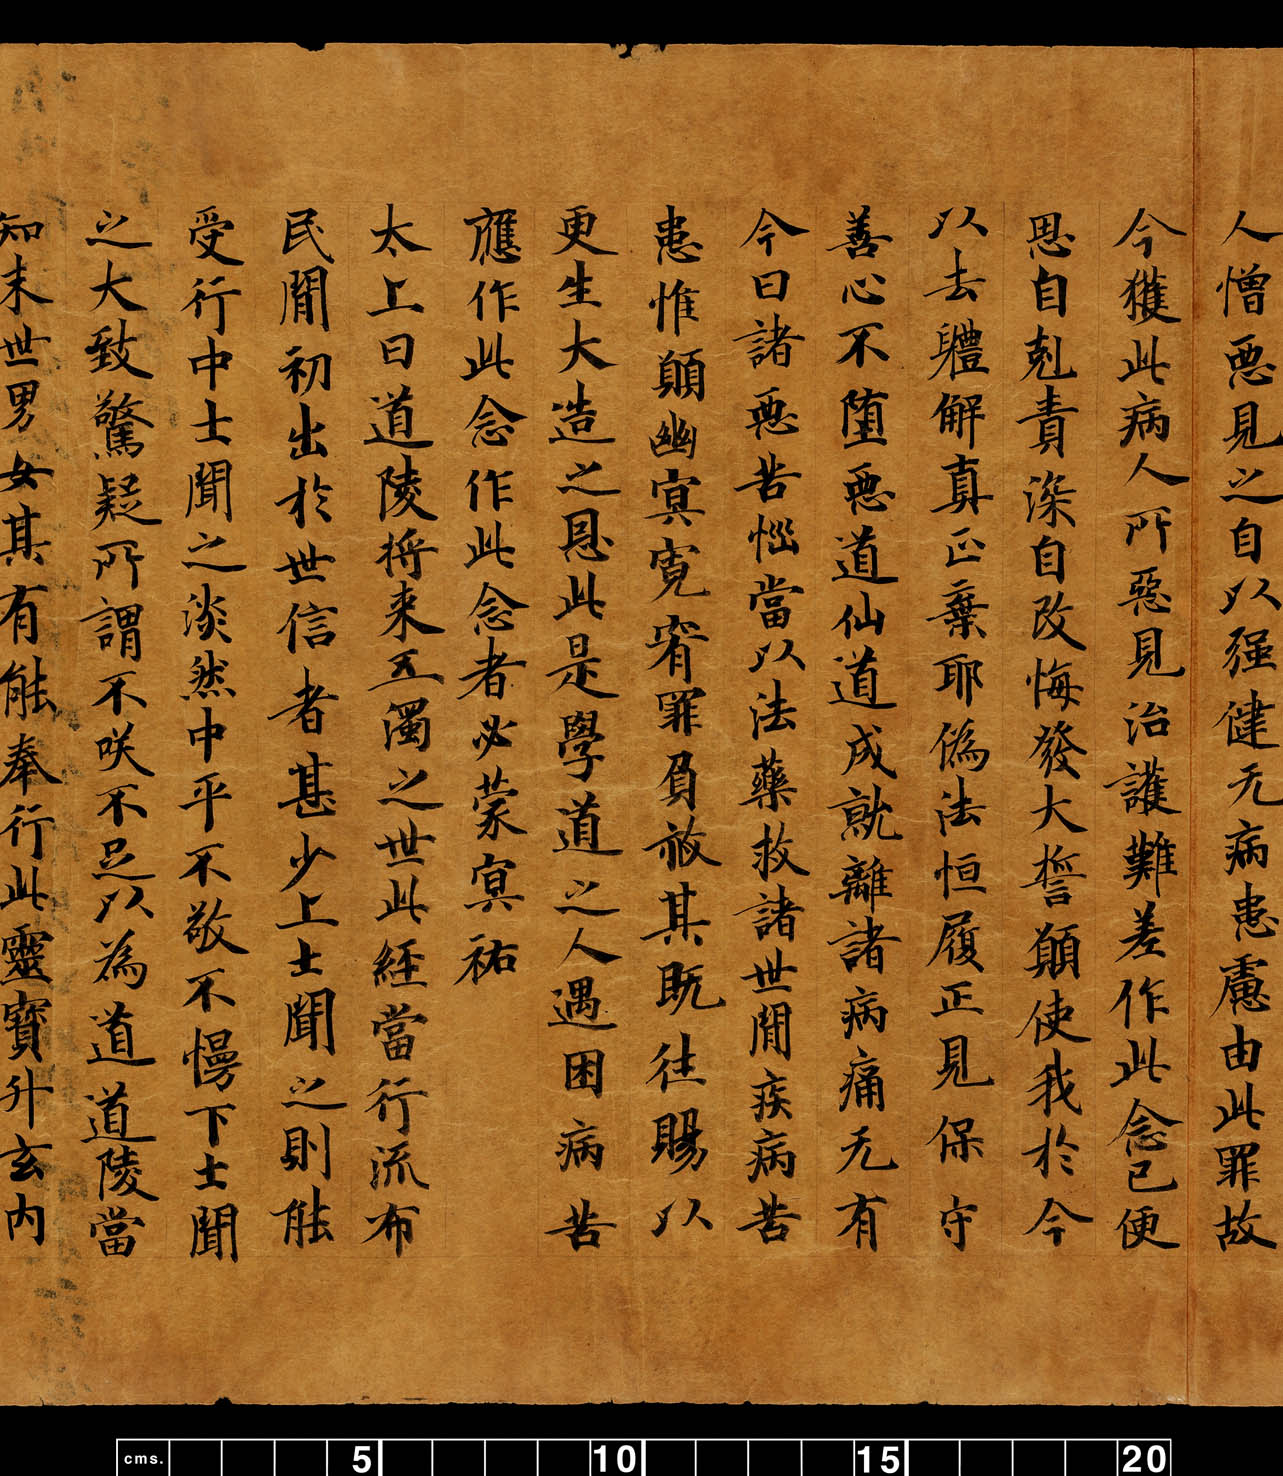 人憎惡見之自以强健无病患慮由此罪故
今獲此病人所惡見治護難差作此念已便
思自剋責深自改悔發大誓願使我於今
以去軆解真正棄耶偽法恒履正見保守
善心不墮惡道仙道成就離諸病痛无有
今日諸惡苦惱當以法藥救諸世間疾病苦
患惟願幽冥寬宥罪負赦其既往賜以
更生大造之恩此是學道之人遇困病苦
應作此念作此念者必蒙冥祐
太上曰道陵將來五濁之世此經當行流布
民間初出於世信者甚少上士聞之則能
受行中士聞之淡然中平不敬不慢下士聞
之大致驚疑所謂不咲不足以為道道陵當
知末世男女其有能奉行此靈寶升玄内
cms. 5 10 15 20